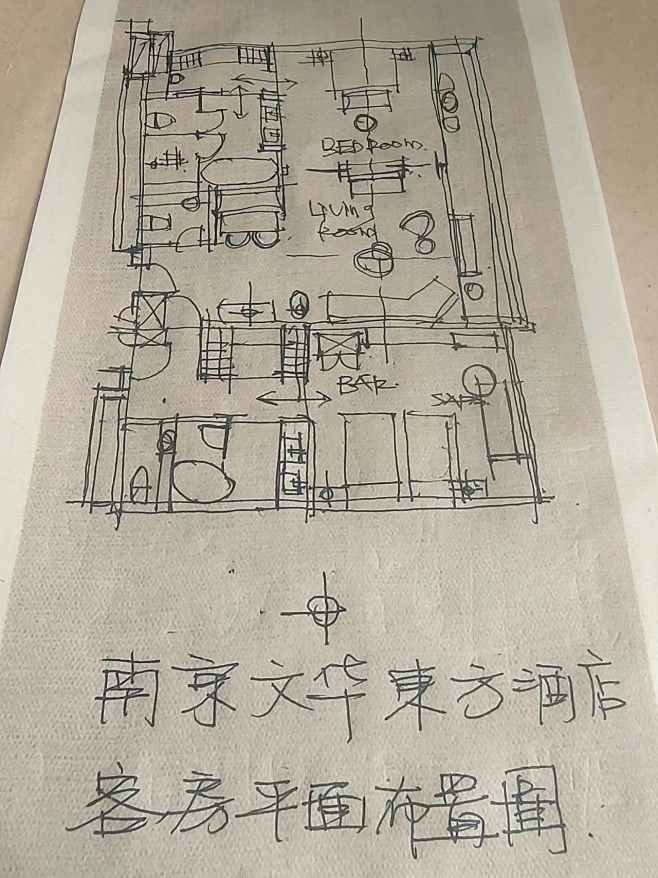 BEDROOM.
LIVING
ROOM
BAR.
SAFE
南京文华東方酒店
客房平面布置圖.